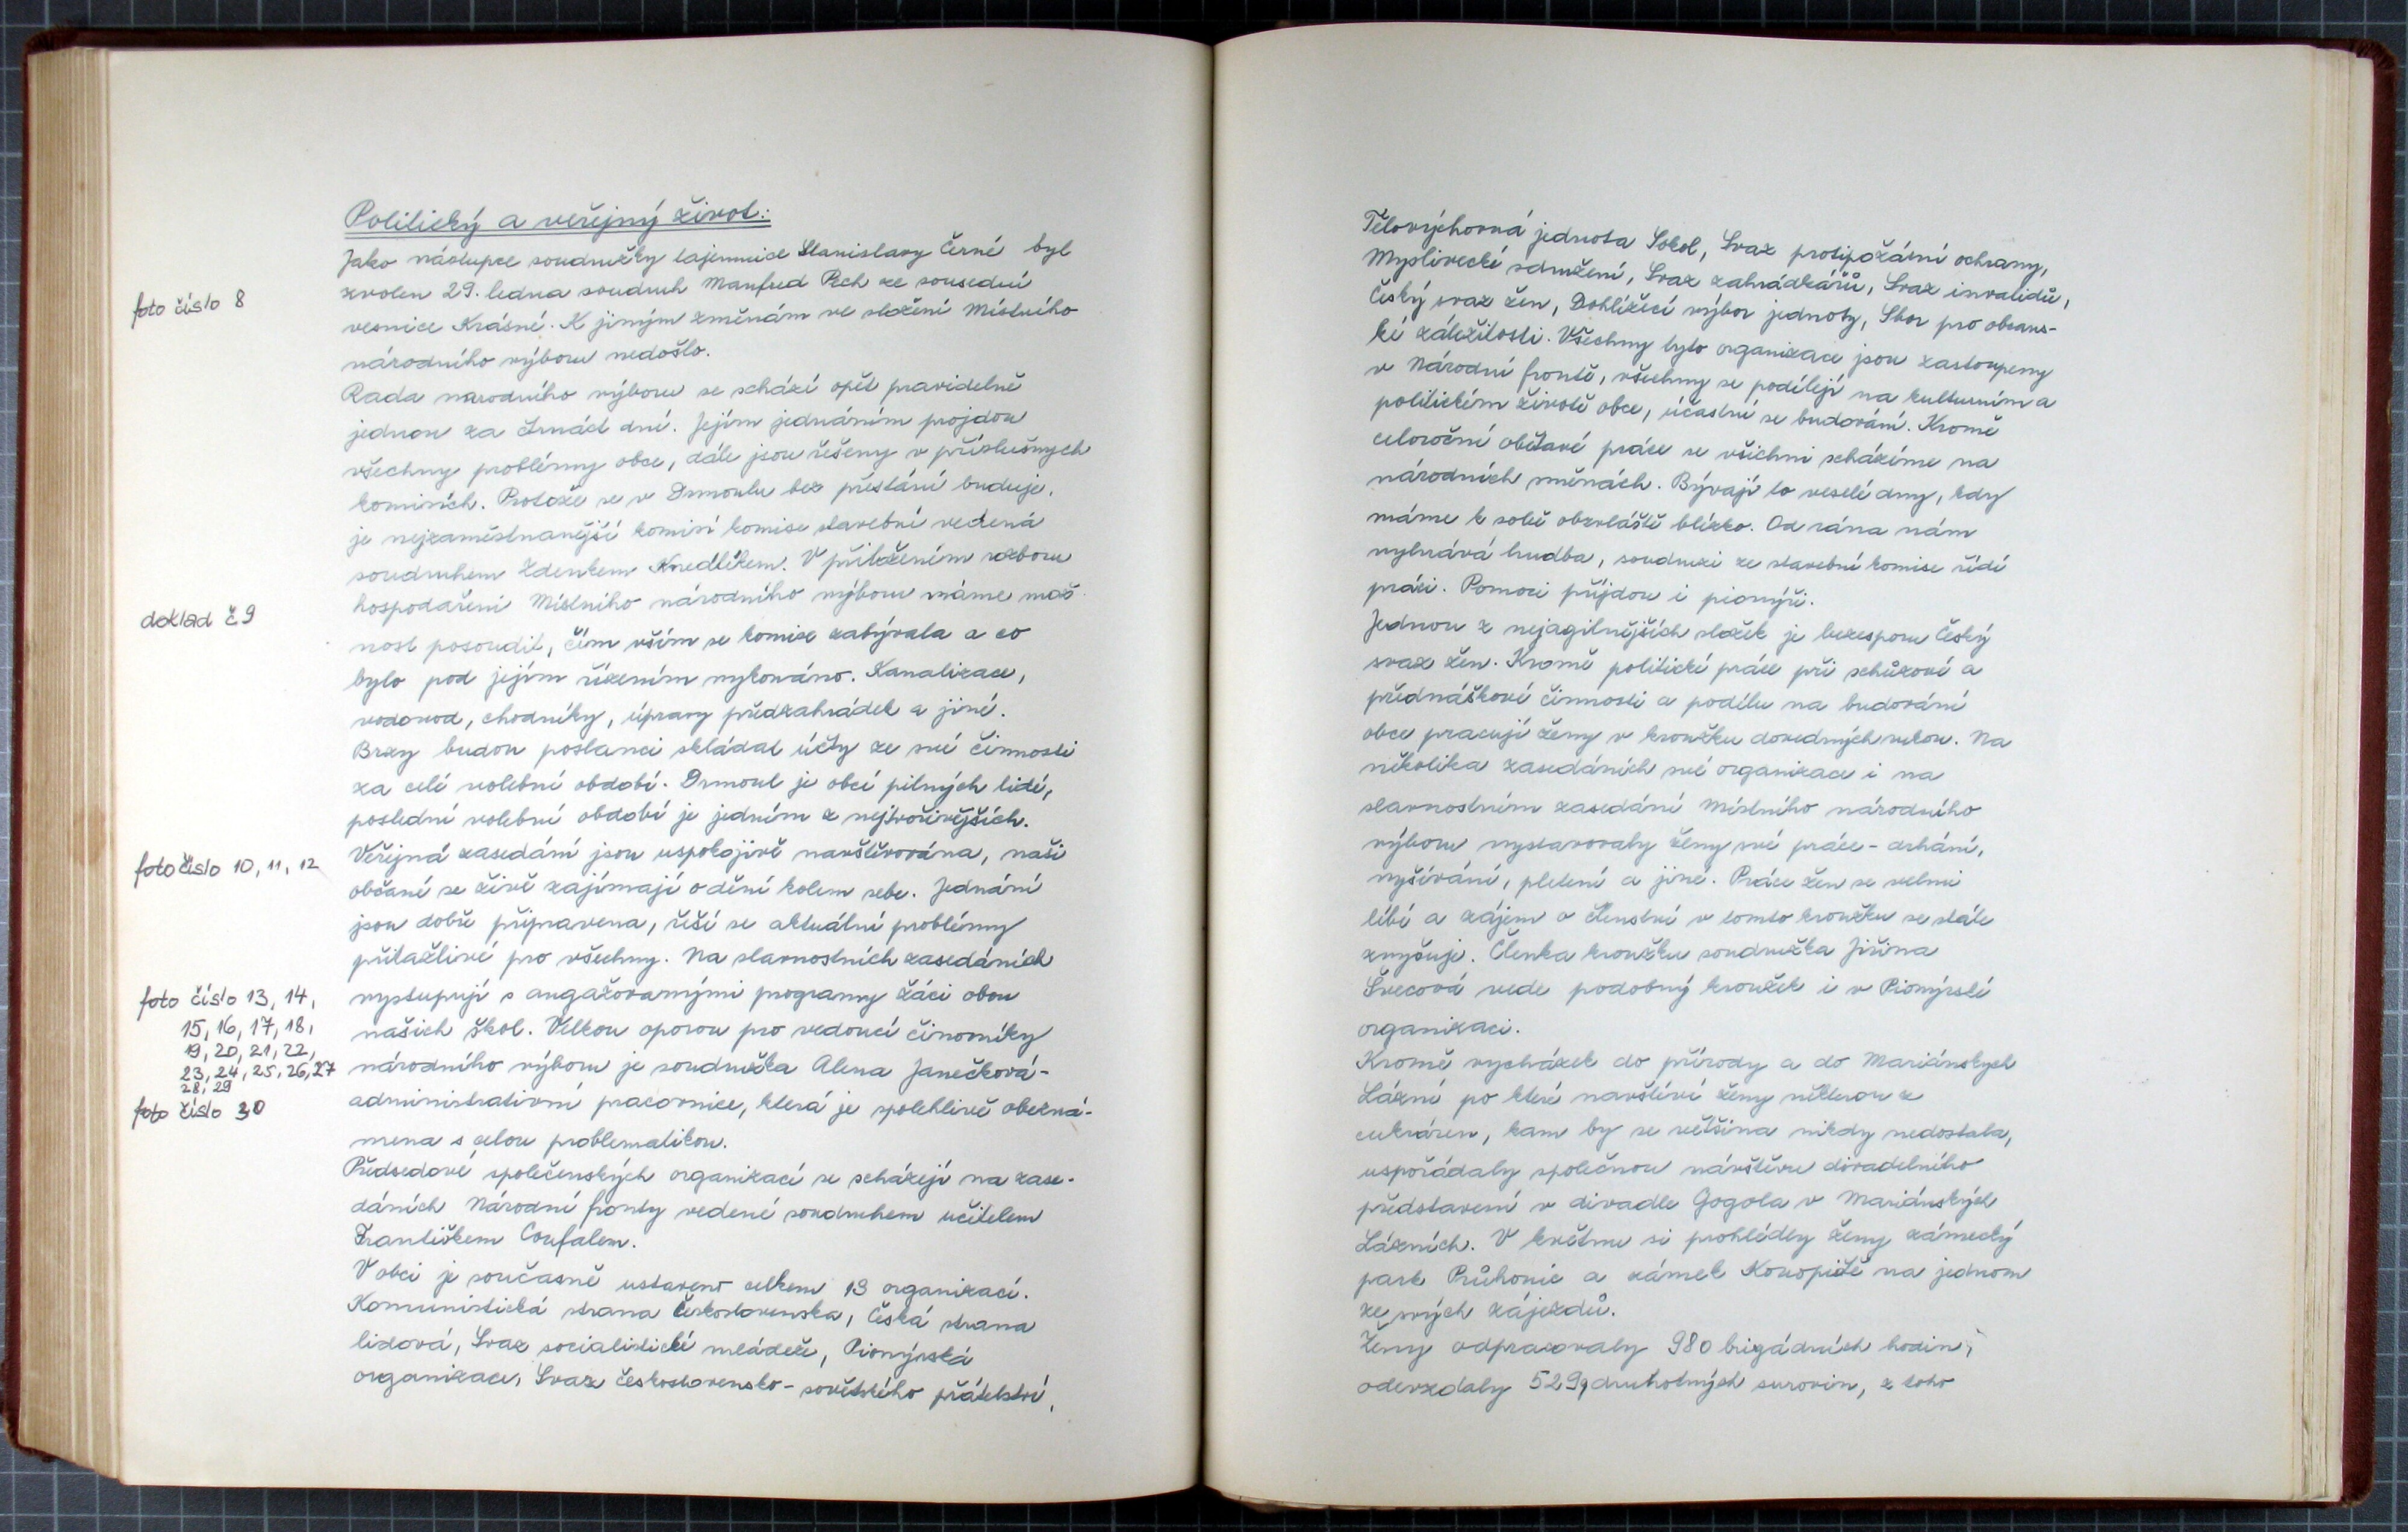 Politický a veřejný život:
Jako nástupce soudružky tajemnice Stanislavy Černé byl
foto číslo 8
zvolen 29. ledna soudruh Manfred Pech ze sousední
vesnice Krásné. K jiným změnám ve složení Místního
národního výboru nedošlo.
Rada národního výboru se schází opět pravidelně
jednou za čtrnáct dní. Jejím jednáním projdou
všechny problémy obce, dále jsou řešeny v příslušných
komisích. Protože se v Drmoulu bez přestání buduje,
je nejzaměstnanější komisí komise stavební vedená
soudruhem Zdenkem Knedlíkem. V přiloženém rozboru
doklad č 9
hospodaření Místního národního výboru máme mož-
nost posoudit, čím vším se komise zabývala a co
bylo pod jejím řízením vykonáno. Kanalizace,
vodovod, chodníky, úpravy předzahrádek a jiné.
Brzy budou poslanci skládat účty ze své činnosti
za celé volební období. Drmoul je obcí pilných lidí,
poslední volební období je jedním z nejtvořivějších.
foto číslo 10, 11, 12
Veřejná zasedání jsou uspokojivě navštěvována, naši
občané se živě zajímají o dění kolem sebe. Jednání
jsou dobře připravena, řeší se aktuální problémy
přitažlivé pro všechny. Na slavnostních zasedáních
foto číslo 13, 14,
15, 16, 17, 18,
19, 20, 21, 22,
23, 24, 25, 26, 27
28, 29
vystupují s angažovanými programy žáci obou
našich škol. Velkou oporou pro vedoucí činovníky
národního výboru je soudružka Alena Janečková-
foto číslo 30
administrativní pracovnice, která je spolehlivě obezná-
mena s celou problematikou.
Předsedové společenských organizací se scházejí na zase-
dáních Národní fronty vedené soudruhem učitelem
Františkem Coufalem.
V obci je současně ustaveno celkem 13 organizací.
Komunistická strana Československa, Česká strana
lidová, Svaz socialistické mládeže, Pionýrská
organizace, Svaz československo-sovětského přátelství,
Tělovýchovná jednota Sokol, Svaz protipožární ochrany,
Myslivecké sdružení, Svaz zahrádkářů, Svaz invalidů,
Český svaz žen, Dohlížecí výbor jednoty, Sbor pro občans-
ké záležitosti. Všechny tyto organizace jsou zastoupeny
v Národní frontě, všechny se podílejí na kulturním a
politickém životě obce, účastní se budování. Kromě
celoroční obětavé práce se všichni scházíme na
národních směnách. Bývají to veselé dny, kdy
máme k sobě obzvláště blízko. Od rána nám
vyhrává hudba, soudruzi ze stavební komise řídí
práci. Pomoci přijdou i pionýři.
Jednou z nejagilnějších složek je bezesporu Český
svaz žen. Kromě politické práce při schůzové a
přednáškové činnosti a podílu na budování
obce pracují ženy v kroužku dovedných rukou. Na
několika zasedáních své organizace i na
slavnostním zasedání Místního národního
výboru vystavovaly ženy své práce - drhání,
vyšívání, pletení a jiné. Práce žen se velmi
líbí a zájem o členství v tomto kroužku se stále
zvyšuje. Členka kroužku soudružka Jiřina
Švecová vede podobný kroužek i v Pionýrské
organizaci.
Kromě vycházek do přírody a do Mariánských
Lázní po které navštíví ženy některou z
cukráren, kam by se většina nikdy nedostala,
uspořádaly společnou návštěvu divadelního
představení v divadle Gogola v Mariánských
Lázních. V květnu si prohlédly ženy zámecký
park Průhonic a zámek Konopiště na jednom
ze svých zájezdů.
Ženy odpracovaly 980 brigádních hodin,
odevzdaly 529q druhotných surovin, z toho